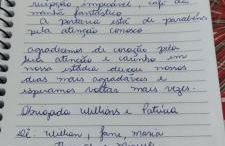 recepção, impecável, café da
manhã fantástico
A portaria está de parabéns
pela atenção conosco
Agradecemos de coração pela
sua atenção e carinho em
nossa estadia deixou nossos
dias mais agradáveis e
esperamos voltar mais vezes.
Obrigada Willians e Patrícia
De: Willian, Jane, maria